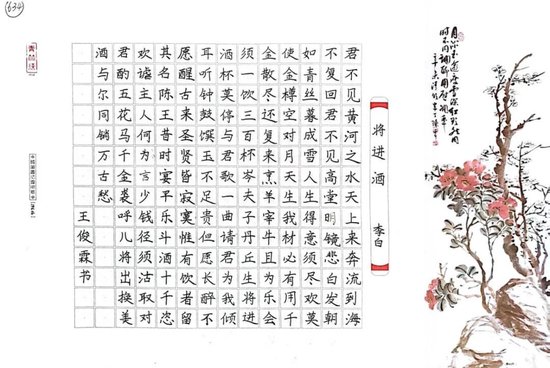 将进酒
李白
君不见黄河之水天上来奔流到海
不复回君不见高堂明镜悲白发朝
如青丝暮成雪人生得意须尽欢莫
使金樽空对月天生我材必有用千
金散尽还复来烹羊宰牛且为乐会
须一饮三百杯岑夫子丹丘生将进
酒杯莫停与君歌一曲请君为我倾
耳听钟鼓馔玉不足贵但愿长醉不
愿醒古来圣贤皆寂寞惟有饮者留
其名陈王昔时宴平乐斗酒十千恣
欢谑主人何为言少钱径须沽取对
君酌五花马千金裘呼儿将出换美
酒与尔同销万古愁
王俊霖书
634